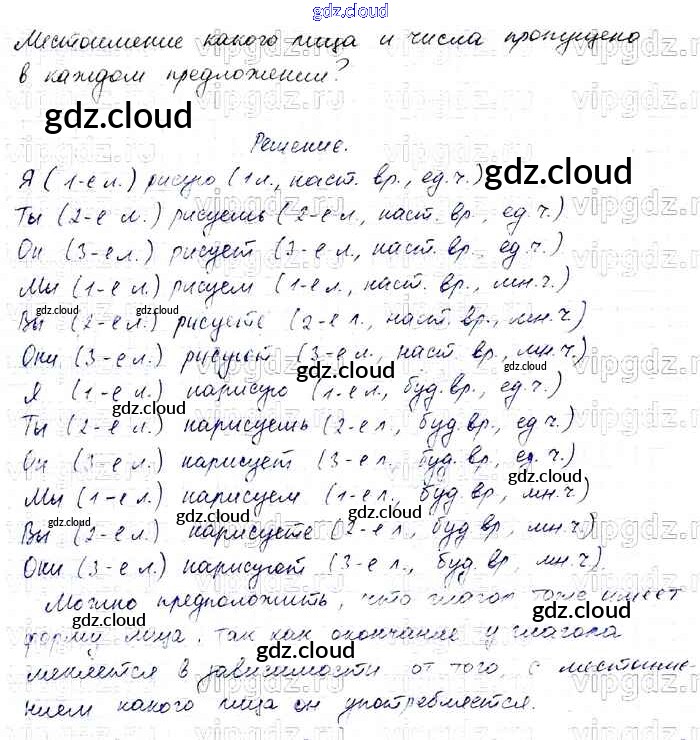 gdz.cloud
Местоимение какого лица и числа пропущено
в каждом предложении?
gdz.cloud
Решение.
gdz.cloud
Я (1-е л.) рисую (1 л., наст. вр., ед.ч.)
Ты (2-е л.) рисуешь (2-е л., наст. вр., ед.ч.)
Он (3-е л.) рисует (3-е л., наст. вр., ед.ч.)
Мы (1-е л.) рисуем (1-е л., наст. вр., мн.ч.)
gdz.cloud gdz.cloud gdz.cloud
Вы (2-е л.) рисуете (2-е л., наст. вр., мн.ч.)
Они (3-е л.) рисуют (3-е л., наст. вр., мн.ч.)
Я (1-е л.) нарисую (1-е л., буд. вр., ед.ч.)
gdz.cloud gdz.cloud
Ты (2-е л.) нарисуешь (2-е л., буд. вр., ед.ч.)
Он (3-е л.) нарисует (3-е л., буд. вр., ед.ч.)
gdz.cloud
Мы (1-е л.) нарисуем (1-е л., буд. вр., мн.ч.)
gdz.cloud gdz.cloud gdz.cloud
Вы (2-е л.) нарисуете (2-е л., буд. вр., мн.ч.)
Они (3-е л.) нарисуют (3-е л., буд. вр., мн.ч.).
Можно предположить, что глагол тоже имеет
gdz.cloud gdz.cloud
форму лица, так как окончание у глагола
gdz.cloud
меняется в зависимости от того, с местоиме-
нием какого лица он употребляется.
gdz.cloud